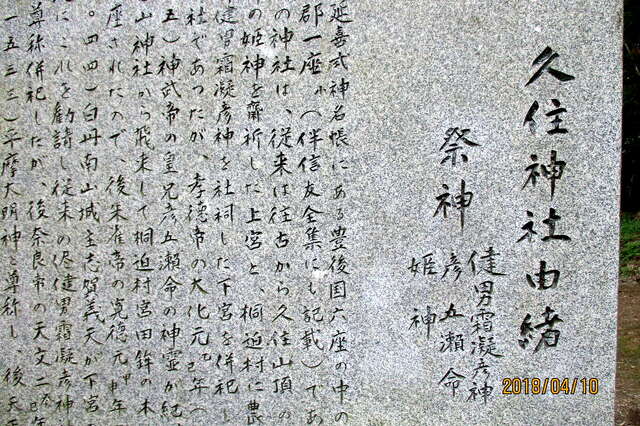 久住神社由緒
祭神 健男霜凝彦神
彦五瀬命
姫神
延喜式神名帳にある豊後国六座の中の
郡一座小(伴信友全集にも記載)であ
の神社は、従来は往古から久住山頂の
の姫神を齋祈した上宮と、桐迫村に農
健男霜凝彦神を社祠した下宮を併祀し
社であつたが、孝徳帝の大化元乙巳年(
五)神武帝の皇兄彦五瀬命の神霊が紀
山神社から飛来して桐迫村宮田鉾の木
座されたので、後朱雀帝の長徳元甲申年
四四)白丹南山城主志賀義天が下宮
にこれを勧請し従来の侭健男霜凝彦神
尊称併祀したが、後奈良帝の天文二癸巳年
一五三三)平摩大明神と尊称し、後天
2018/04/10